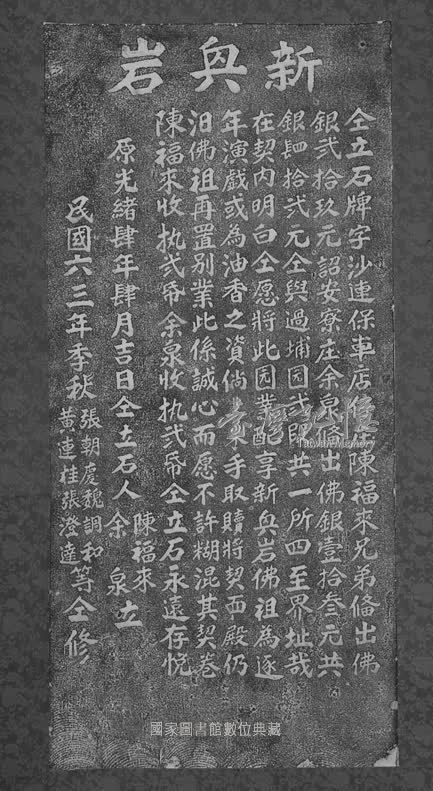 新奥岩
仝立石牌字沙連保車店陳福來兄弟俻出佛
銀弍拾玖元詔安寮庄余泉俻出佛銀壹拾叁元共
銀肆拾弍元仝與過埔园弍共一所四至界址哉
在契內明白仝愿將此园業配享新奥岩佛祖為逐
年演戲或為油香之資倘手取贖將契面殿仍
汨佛祖再置別業此係誠心而愿不許糊混其契卷
陳福來收执弍帋余泉收执弍帋仝立石永遠存悦
原光緒肆年肆月吉日仝立石人陳福來余泉立
民國六三年季秋張朝慶魏調和黃連桂張澄達等仝修
臺灣記憶
Taiwan Memory
國家圖書館數位典藏